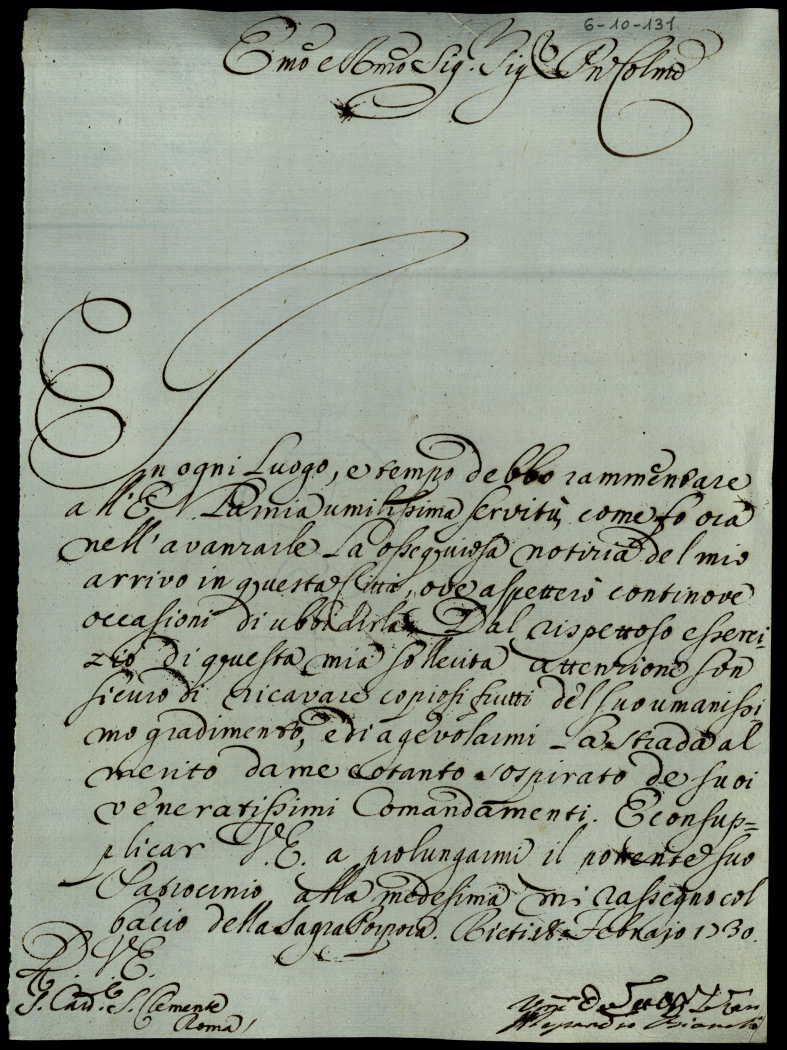 6-10-131
Emo e Rmo Sig. Sig. Pn Colmo
In ogni Luogo, e tempo debbo rammentare
all'E. V. la mia umilissima servitù come fo ora
nell'avanzarle La ossequiosa notizia del mio
arrivo in questa Città, ove aspetterò continove
occasioni di ubbidirla. Dal rispettoso eserci-
zio di questa mia sollecita attenzione son
sicuro di ricavare copiosi frutti del suo umanissi-
mo gradimento, e di agevolarmi La strada al
merito da me cotanto sospirato de suoi
veneratissimi Comandamenti. E con sup=
plicar V. E. a prolungarmi il potente suo
Patrocinio alla medesima mi rassegno col
bacio della Sagra Porpora. Rieti 18. Febrajo 1730.
D. V. E.
S. Card. S. Clemente
Roma
Umo
Alessandro